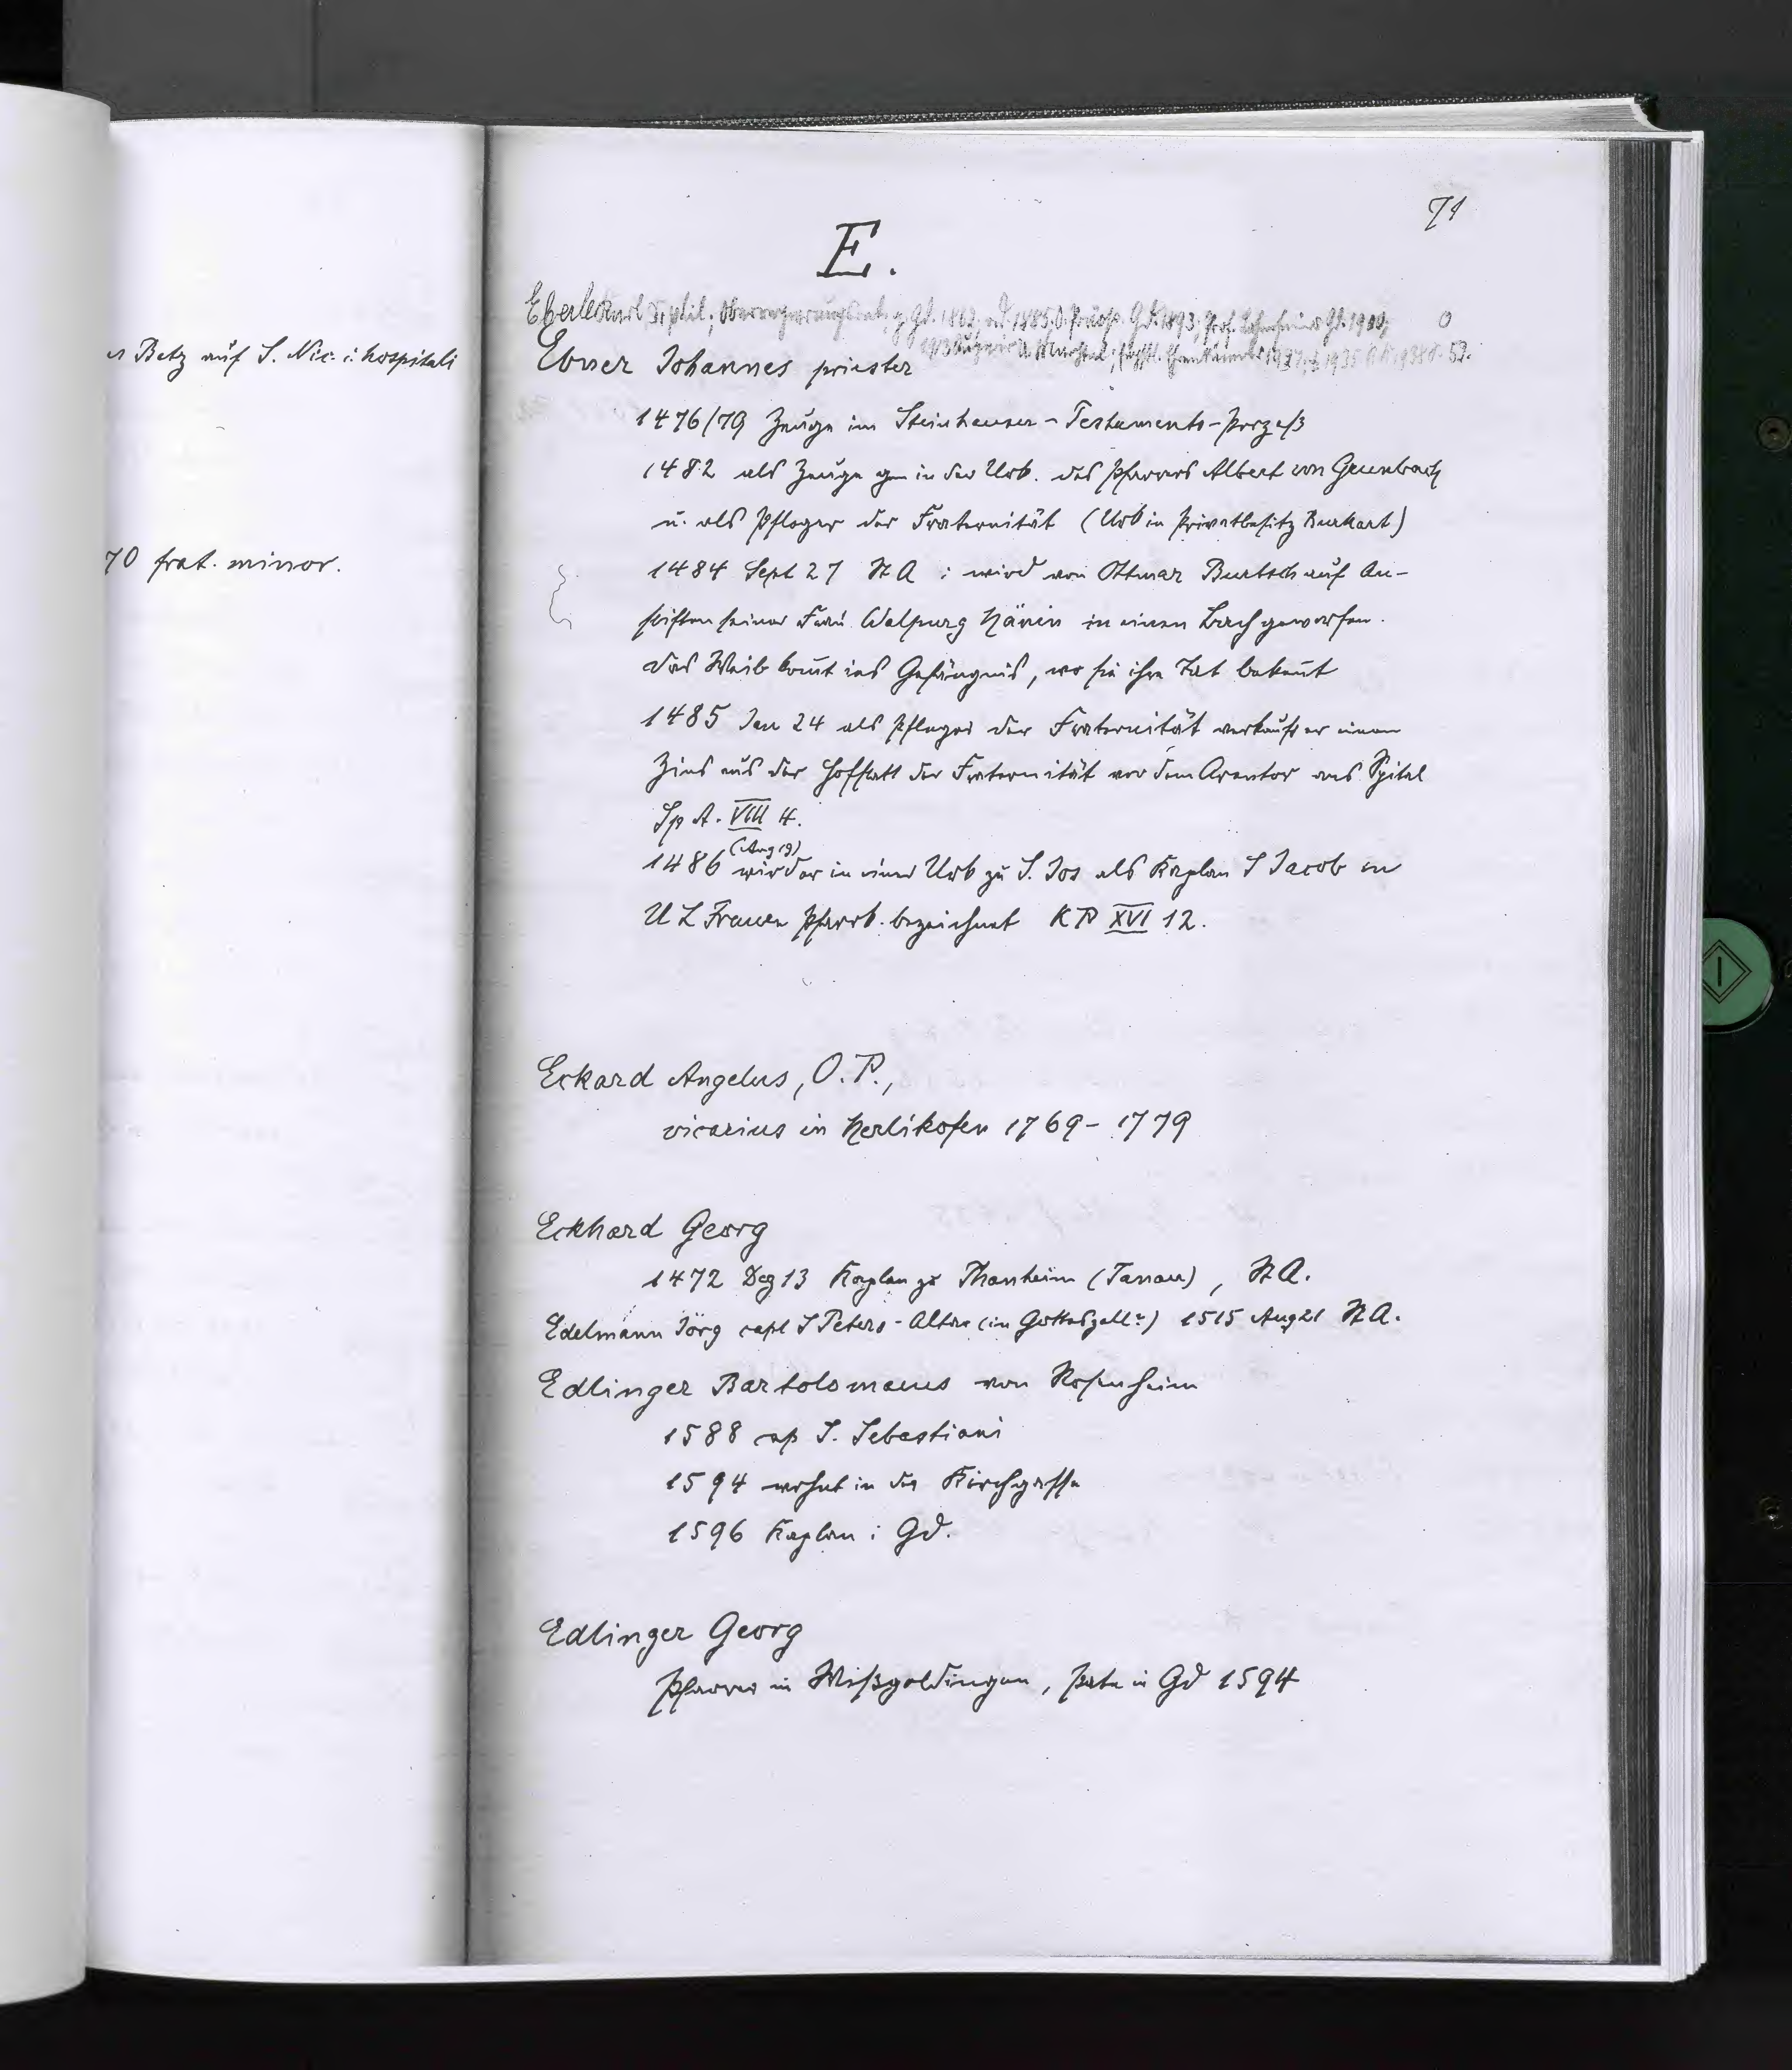 71
E.
Eberle Karl Dr. phil.; Oberregierungsrat, g. Gd. 1862, ord. 1885, Präzep. Gd. 1893; Prof. Gd. 1900;
1913
Ebner Johannes priester
1476/79 Zeuge im Steinhauser-Testaments-Prozeß
1482 als Zeuge gen in der Urk. des Pfarrers Albert von Gruenbach
u. als Pfleger der Fraternität (Urk in Privatbesitz Burkart)
1484 Sept 27 St A : wird von Ottmar Burtsch auf An-
stiften seiner Frau Walpurg Hänin in einen Bach geworfen.
das Weib komt ins Gefängnis, wo sie ihre Tat bekent
1485 Jan 24 als Pfleger der Fraternität verkauft er einen
Zins aus der Hofstatt der Fraternität vor dem Arentor ans Spital
Sp A. VIII 4.
1486 (Aug 19) wird er in einer Urk zu S. Jos als Kaplan S Jacob in
U L Frauen Pfarrk. bezeichnet KP XVI 12.
Eckard Angelus, O.P.,
vicarius in Herlikofen 1769-1779
Eckhard Georg
1472 Dez 13 Kaplan zu Thanheim (Tanau), St A.
Edelmann Jörg capl S Peters-Altar (in Gotteszell?) 1515 Aug 21 St A.
Edlinger Bartolomaeus von Rosenheim
1588 cap S. Sebastiani
1594 wohnt in der Kirchgasse
1596 Kaplan i Gd.
Edlinger Georg
Pfarrer in Wißgoldingen, Pate in Gd 1594
Betz auf S. Nic. i. hospitali
70 frat. minor.